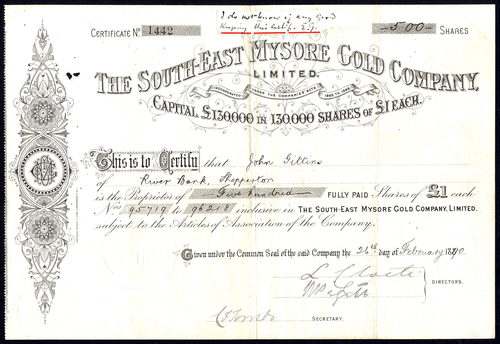 I do not know if any good
Keeping this certif. E.G.
CERTIFICATE Nº 1442
500 SHARES
THE SOUTH-EAST MYSORE GOLD COMPANY,
LIMITED.
INCORPORATED UNDER THE COMPANIES' ACTS 1862 TO 1886
CAPITAL £130000 IN 130,000 SHARES OF £1 EACH.
This is to Certify that John Gittins
of River Bank, Shepperton
is the Proprietor of Five hundred FULLY PAID Shares of £1 each
Nos 95719 to 96218 inclusive in THE SOUTH-EAST MYSORE GOLD COMPANY, LIMITED.
subject to the Articles of Association of the Company.
Given under the Common Seal of the said Company the 26th day of February 1890
DIRECTORS.
SECRETARY.